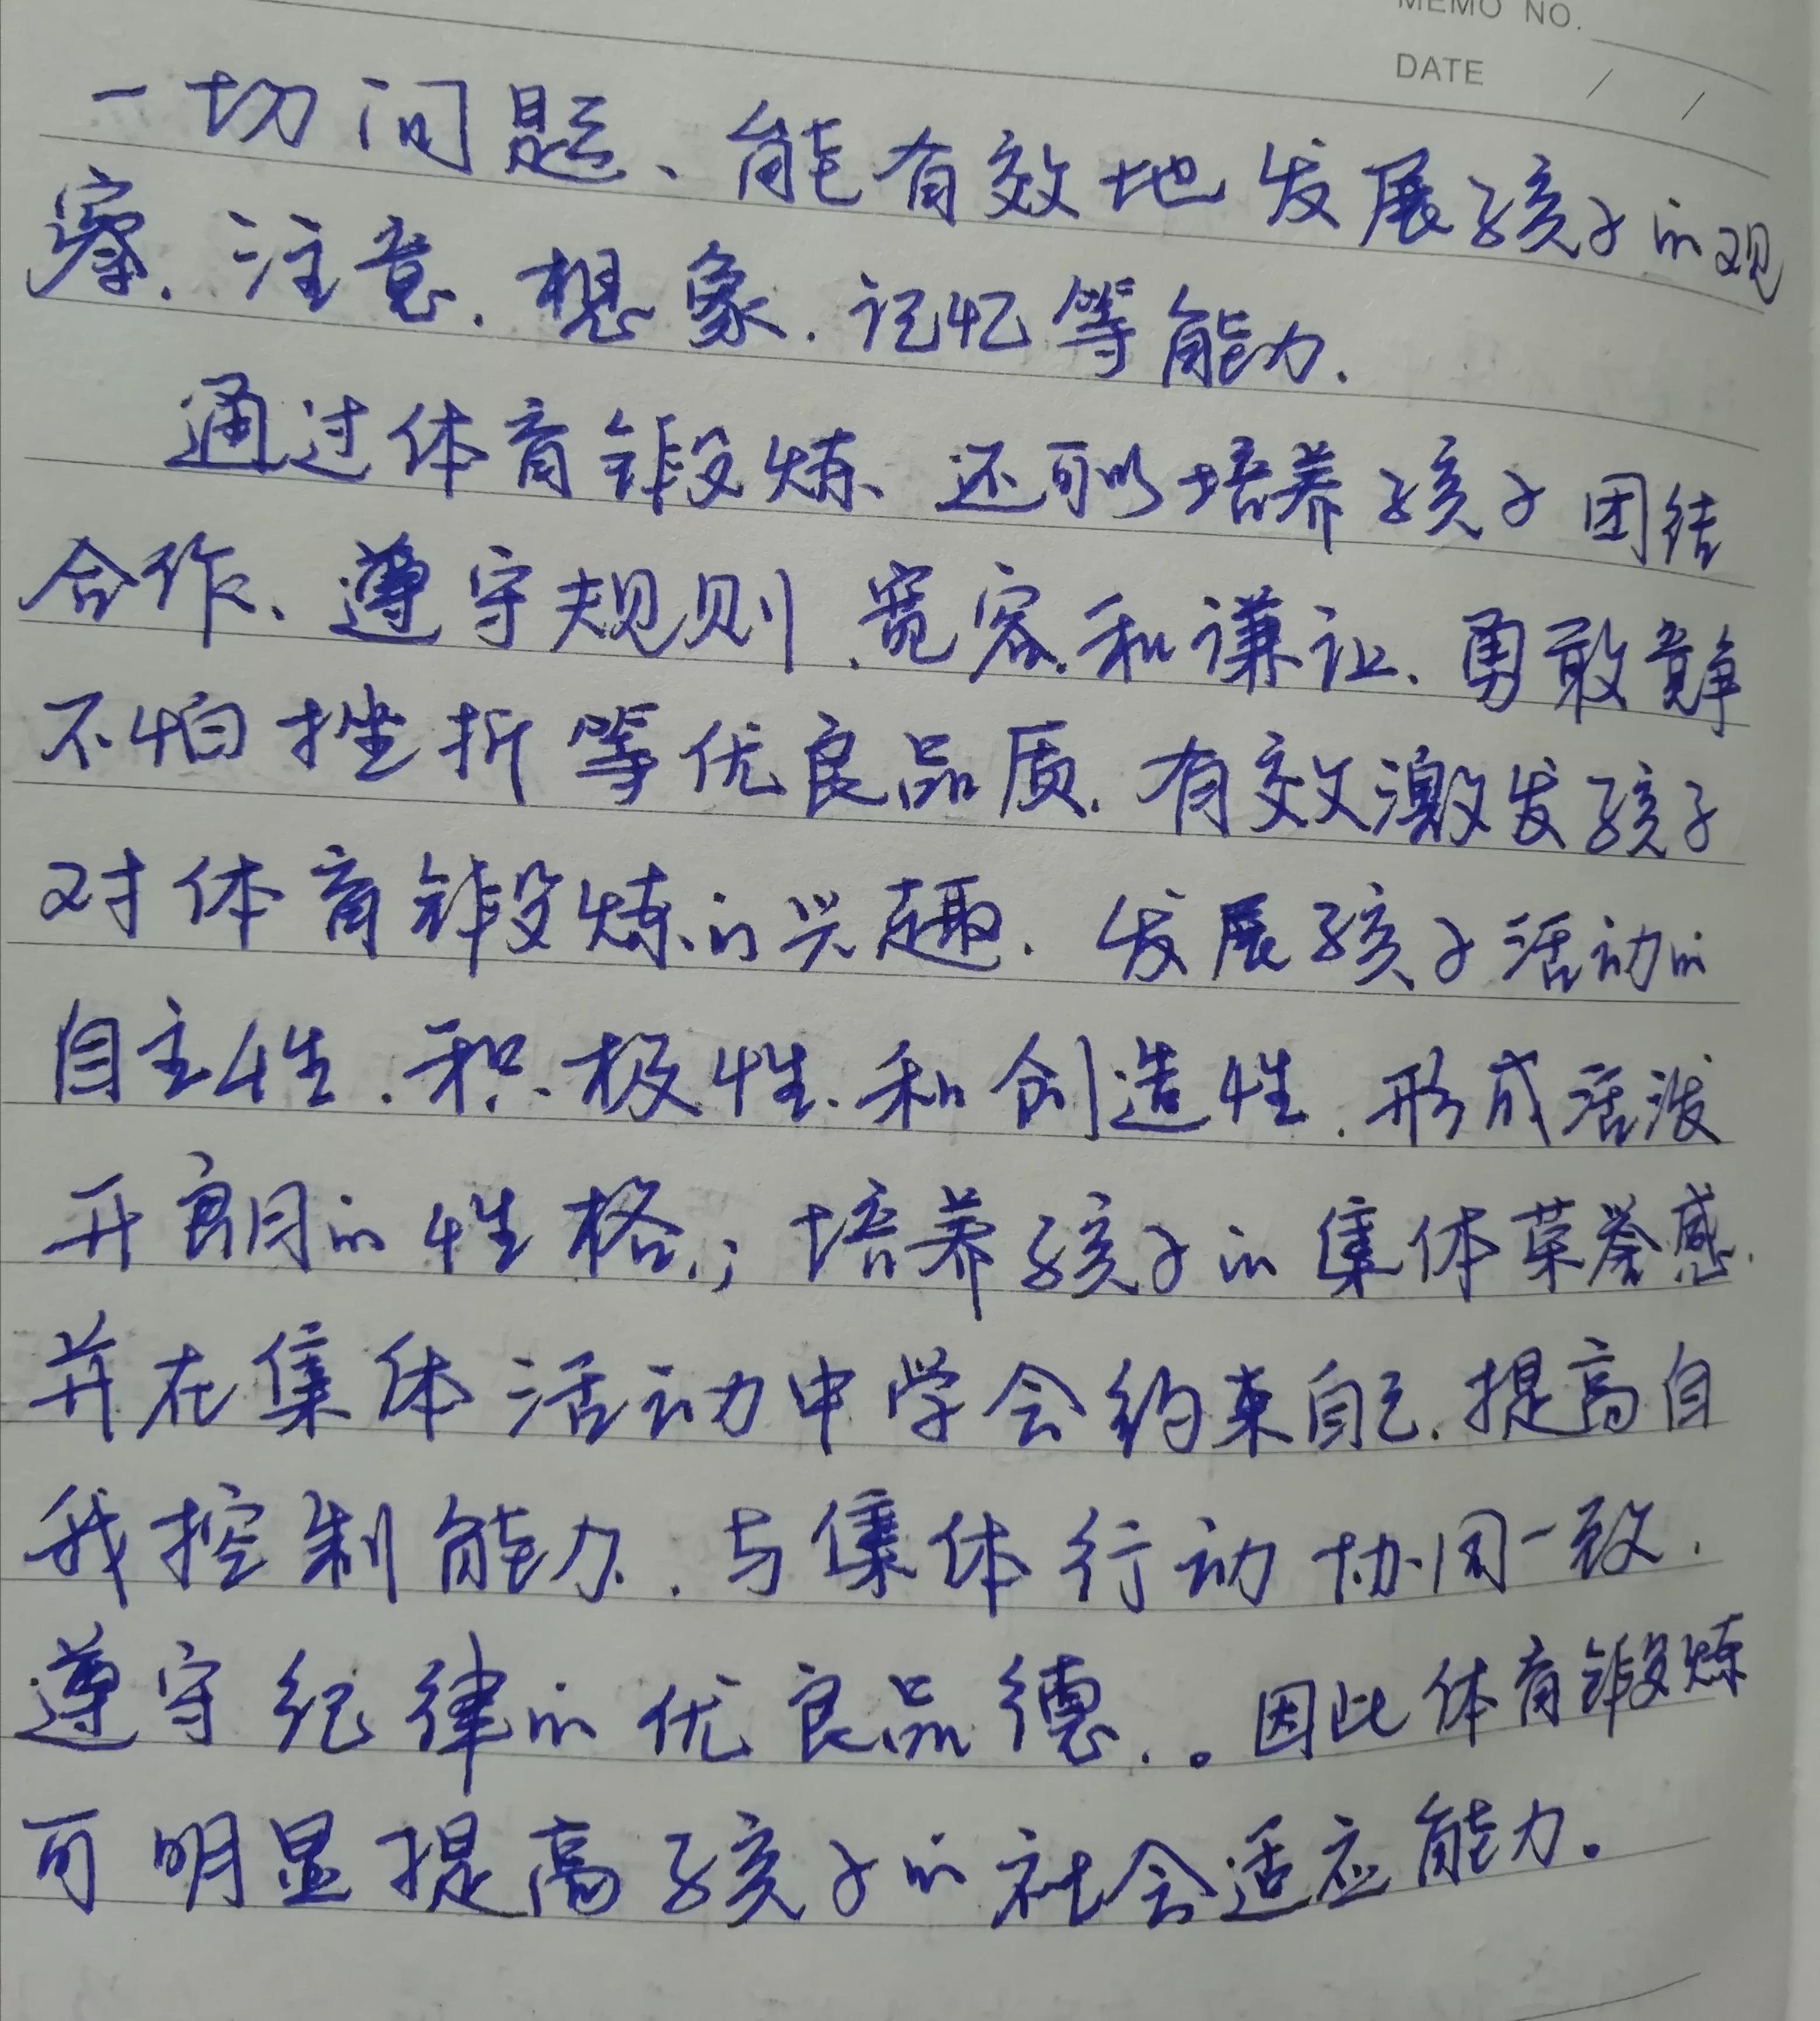 MEMO NO.
DATE / /
一切问题、能有效地发展孩子的观
察、注意、想象、记忆等能力.
通过体育锻炼、还可以培养孩子团结
合作、遵守规则、宽容和谦让、勇敢竞争
不怕挫折等优良品质.有效激发孩子
对体育锻炼的兴趣.发展孩子活动的
自主性、积极性、和创造性.形成活泼
开朗的性格.;培养孩子的集体荣誉感.
并在集体活动中学会约束自己.提高自
我控制能力.与集体行动协同一致.
遵守纪律的优良品德.。因此体育锻炼
可明显提高孩子的社会适应能力。